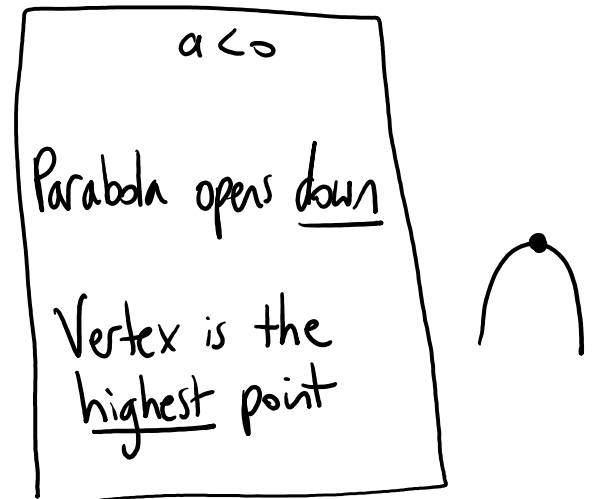 a < 0
Parabola opens down
Vertex is the
highest point